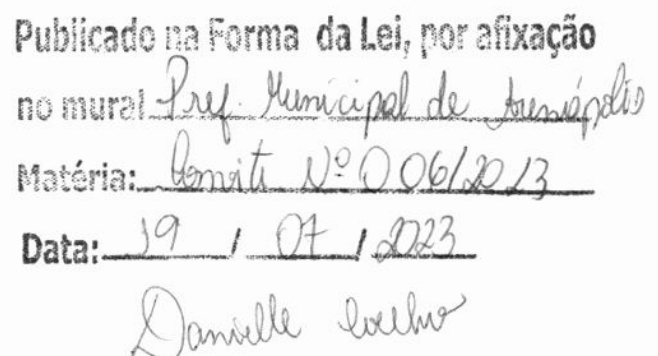 Publicado na Forma da Lei, por afixação
no mural Pref. Municipal de Arenápolis
Matéria: Convite Nº 006/2023
Data: 19 / 07 / 2023
Danielle Coelho